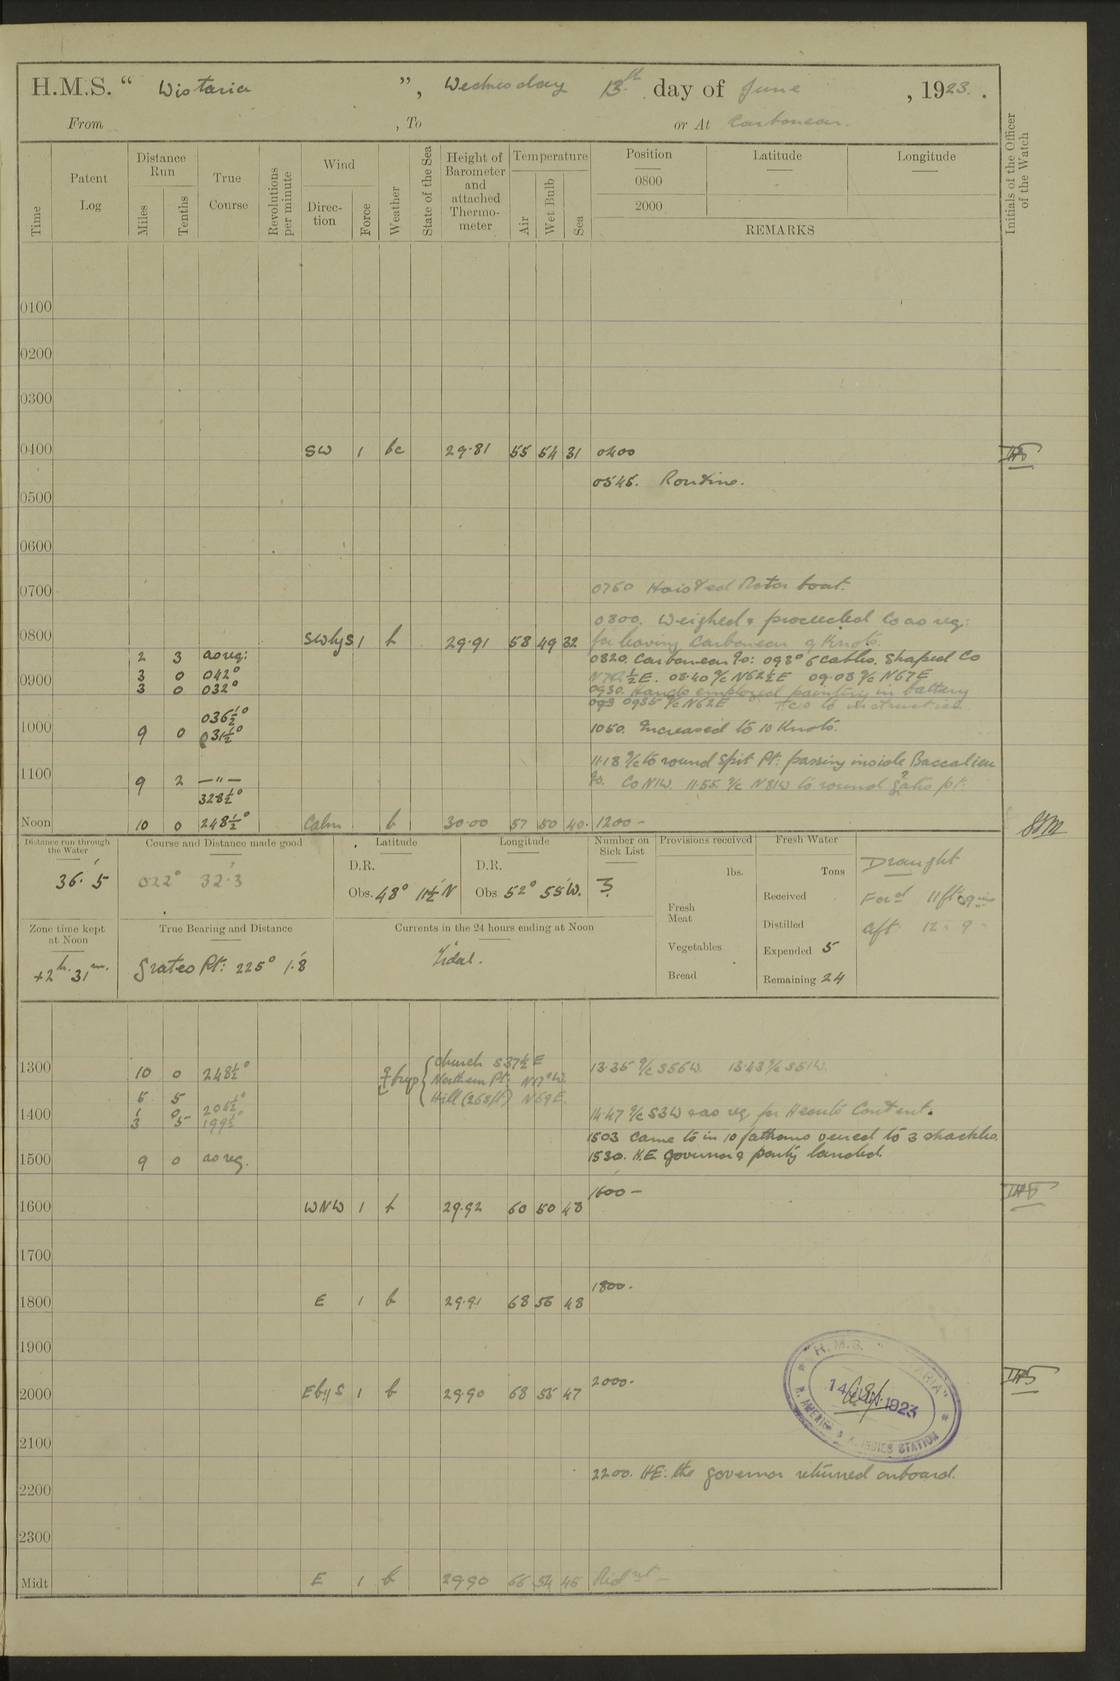 H.M.S. “ Wistaria ”, Wednesday 13th day of June , 1923.
From , To or At Carbonear.
Time
Patent Log
Distance Run
Miles
Tenths
True Course
Revolutions per minute
Wind
Direction
Force
Weather
State of the Sea
Height of Barometer and attached Thermometer
Temperature
Air
Wet Bulb
Sea
Position
0800
2000
Latitude
Longitude
REMARKS
Initials of the Officer of the Watch
0100
0200
0300
0400 SW 1 bc 29.81 55 54 31 0400
0545. Routine.
0500
0600
0700
0750 Hoisted Motor boat.
0800. Weighed & proceeded Co as req:
0800 SWbyS 1 b 29.91 58 49 32 for leaving Carbonear 9 Knots.
2 3 as req: 0820. Carbonear Co: 093° 6 cables. Shaped Co
0900 3 0 042° N72½E. 08.40 %c N62½E 09.03 %c N67E
3 0 032° 0930. Hands employed painting in battery
0935 %c N62E
036½°
1000 9 0 031½° 1050. Increased to 10 Knots.
11.18 %c to round Split Pt: passing inside Baccalieu
1100 9 2 —"— Co N1W 11.55 %c N81W to round Grates pt:
328½°
Noon 10 0 248½° Calm b 30.00 57 50 40. 1200 -
Distance run through the Water
36.5
Course and Distance made good
022° 32.3
Latitude
D.R.
Obs. 48° 11½'N
Longitude
D.R.
Obs. 52° 55'W.
Number on Sick List
3
Provisions received
lbs.
Fresh Meat
Vegetables
Bread
Fresh Water
Tons
Received
Distilled
Expended 5
Remaining 24
Draught
Ford 11ft 09ins
aft 12 - 9 -
Zone time kept at Noon
+2h. 31m.
True Bearing and Distance
Grates Pt: 225° 1.8
Currents in the 24 hours ending at Noon
Tidal.
church S37½E
1300 10 0 248½° Northern Pt: N17°W. 13.35 %c S56W 13.43 %c S51W.
Hill (268ft) N69E.
5 5
1400 1 0 208½° 14.47 %c S3W & as req for Hearts Content.
3 5 199½°
1503 Came to in 10 fathoms veered to 3 shackles.
1500 9 0 as req. 1530. H.E. Governor & party landed.
1600 -
1600 WNW 1 b 29.92 60 50 48
1700
1800.
1800 E 1 b 29.91 68 56 48
1900
2000.
2000 EbyS 1 b 29.90 68 55 47
H.M.S. "WISTARIA"
14 JUN 1923
N. AMERICA & W. INDIES STATION
2100
2200. H.E. the Governor returned onboard.
2200
2300
Midt E 1 b 29.90 66 54 45 Midnt -